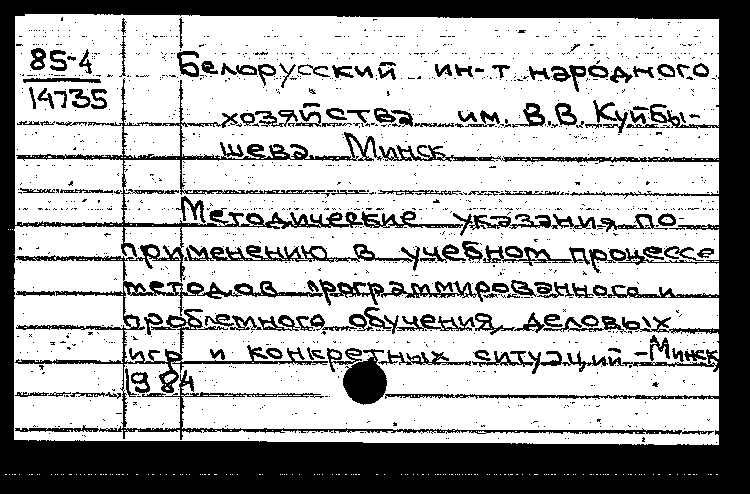 85-4
14735
Белорусский ин-т народного
хозяйства им. В.В. Куйбы-
шева. Минск.
Методические указания по
применению в учебном процессе
методов программированного и
проблемного обучения, деловых
игр и конкретных ситуаций. - Минск,
1984